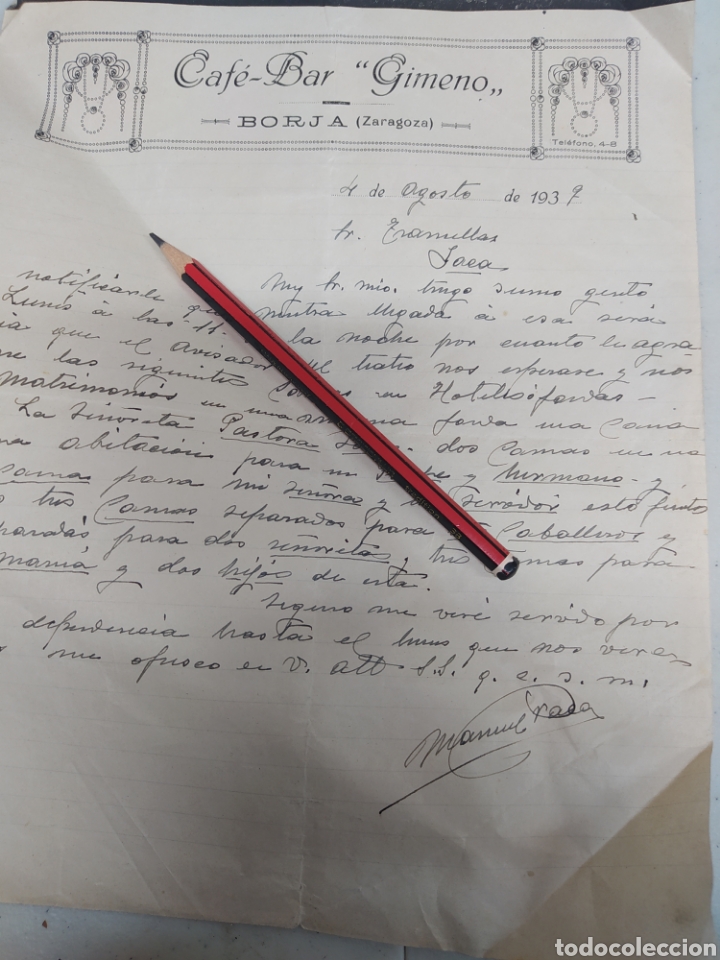 Café-Bar "Gimeno„
BORJA (Zaragoza)
Teléfono, 4-8
4 de Agosto de 1937
Sr. Tramullas
Jaca
Muy Sr. mio: tengo sumo gusto
notificarle que nuestra llegada á esa será
Lunes á las 11 la noche por cuanto le agra
que el avisador del teatro nos esperase y nos
las siguientes en Hoteles ó fondas
matrimonios en una fonda una Cama
La Señorita Pastora dos Camas en una
abitación para su y hermano y
Cama para mi Señora y Servidor esto junto
tres Camas separadas para Caballeros y
para dos Señoritas y tres Camas para
mamá y dos hijos de esta.
Seguro me veré servido por
dependencia hasta el lunes que nos veremos
me ofrezco en V. att S.S. q. e. s. m.
Manuel
todocoleccion